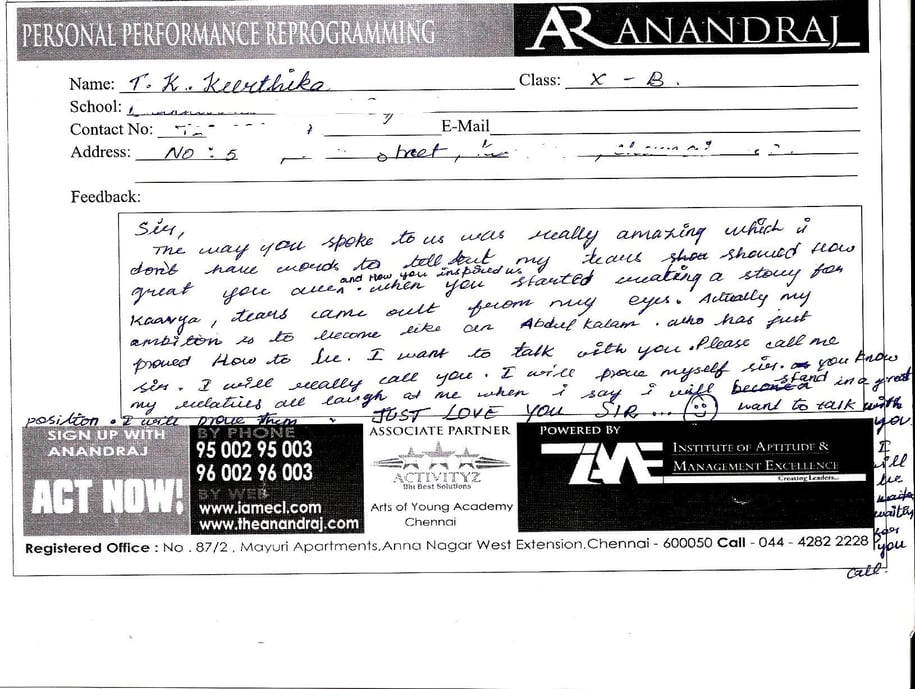 PERSONAL PERFORMANCE REPROGRAMMING
AR ANANDRAJ
Name: T. K. Keerthika Class: X - B.
School:
Contact No: E-Mail
Address: No : 5 street,
Feedback:
Sir,
The way you spoke to us was really amazing which i
don't have words to tell but my tears showed How
great you are and How you inspired us. when you started creating a story for
Kaavya, tears came out from my eyes. Actually my
ambition is to become like an Abdul Kalam. who has just
proved How to be. I want to talk with you. Please call me
sir. I will really call you. I will prove myself sir. as you know
my relatives all laugh at me when i say i will stand in a great
position. I will prove them. JUST LOVE YOU SIR... want to talk with
you. I
will
be
waiting
for
you
call.
SIGN UP WITH
ANANDRAJ
ACT NOW!
BY PHONE
95 002 95 003
96 002 96 003
BY WEB
www.iamecl.com
www.theanandraj.com
ASSOCIATE PARTNER
ACTIVITYZ
Dbi Best Solutions
Arts of Young Academy
Chennai
POWERED BY
IAME
INSTITUTE OF APTITUDE &
MANAGEMENT EXCELLENCE
Creating Leaders...
Registered Office : No . 87/2 , Mayuri Apartments,Anna Nagar West Extension,Chennai - 600050 Call - 044 - 4282 2228